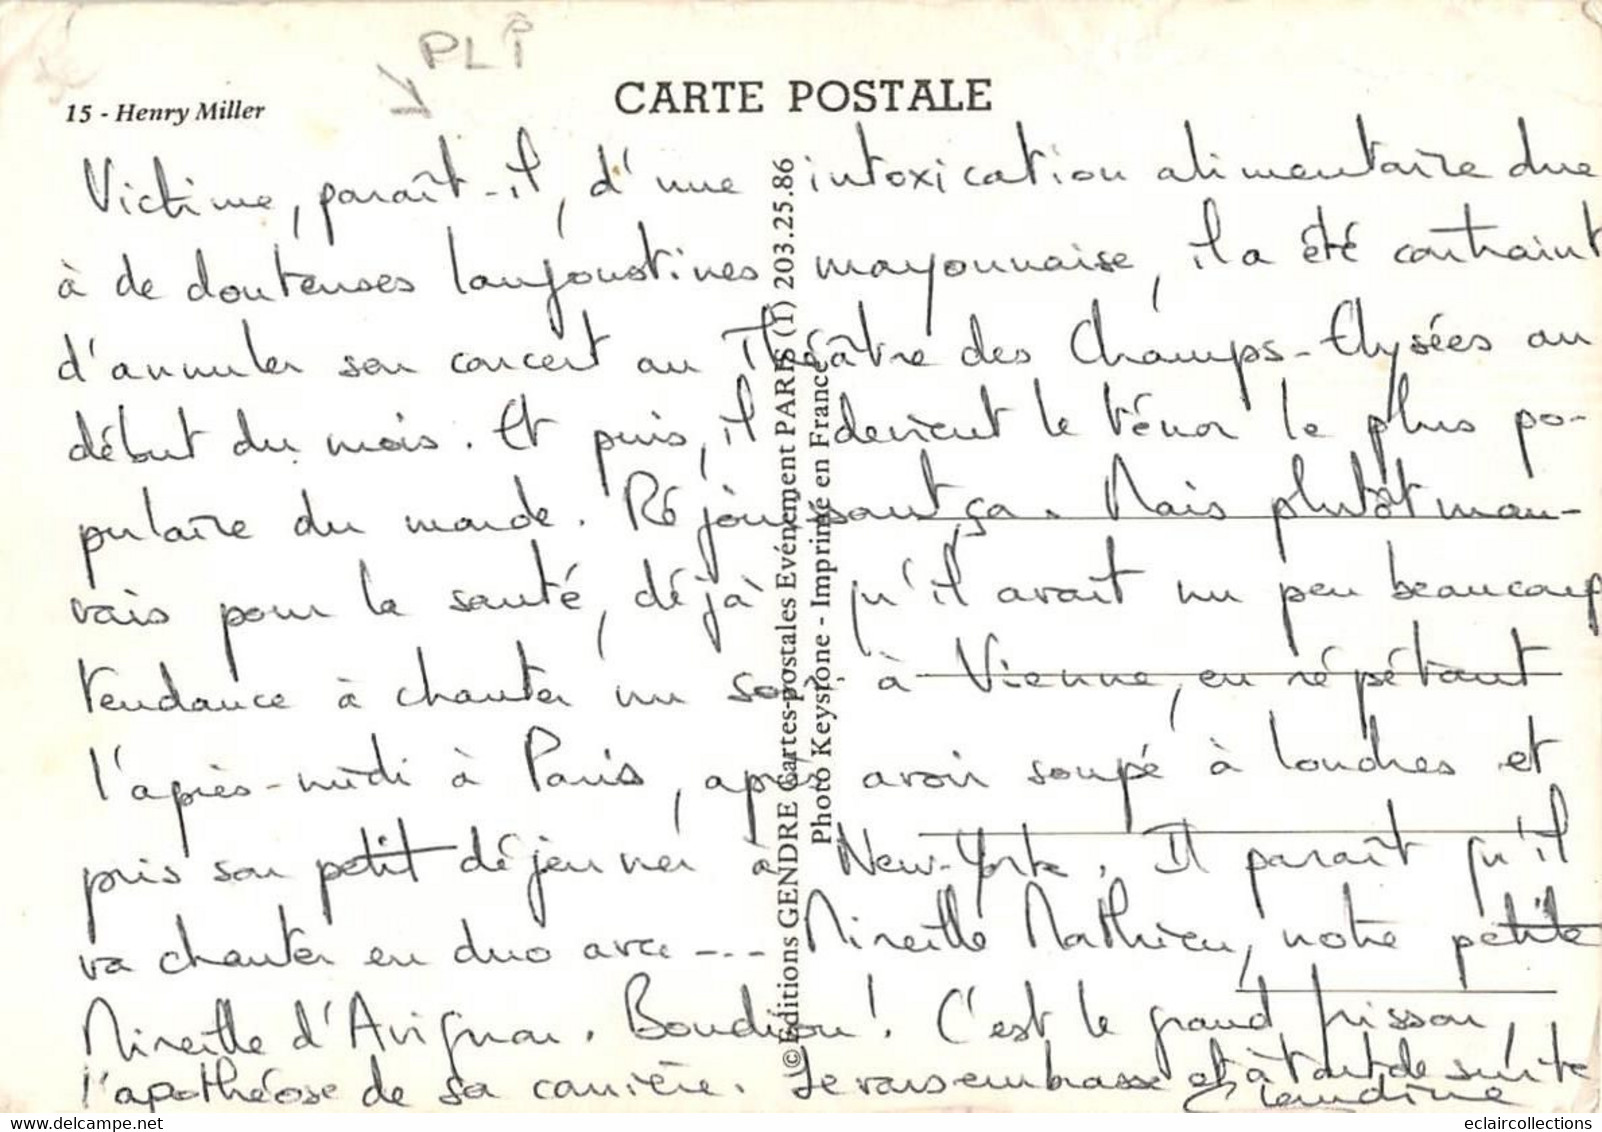 PLI
CARTE POSTALE
15 - Henry Miller
Victime, paraît-il, d'une intoxication alimentaire due
à de douteuses langoustines mayonnaise, il a été contraint
d'annuler son concert au Théâtre des Champs-Elysées au
début du mois. Et puis, il devient le ténor le plus po-
pulaire du monde. Réjouissant, ça. Mais plutôt mau-
vais pour la santé, déjà qu'il avait un peu beaucoup
tendance à chanter un soir à Vienne, en répétant
l'après-midi à Paris, après avoir soupé à Londres et
pris son petit déjeuner à New-York. Il paraît qu'il
va chanter en duo avec --.. Mireille Mathieu, notre petite
Mireille d'Avignon. Boudiou! C'est le grand frisson,
l'apothéose de sa carrière. Je vais embrasse et à tout de suite
Claudine
©Editions GENDRE Cartes-postales Evénement PARIS (1) 203.25.86
Photo Keystone - Imprimé en France
eclaircollections